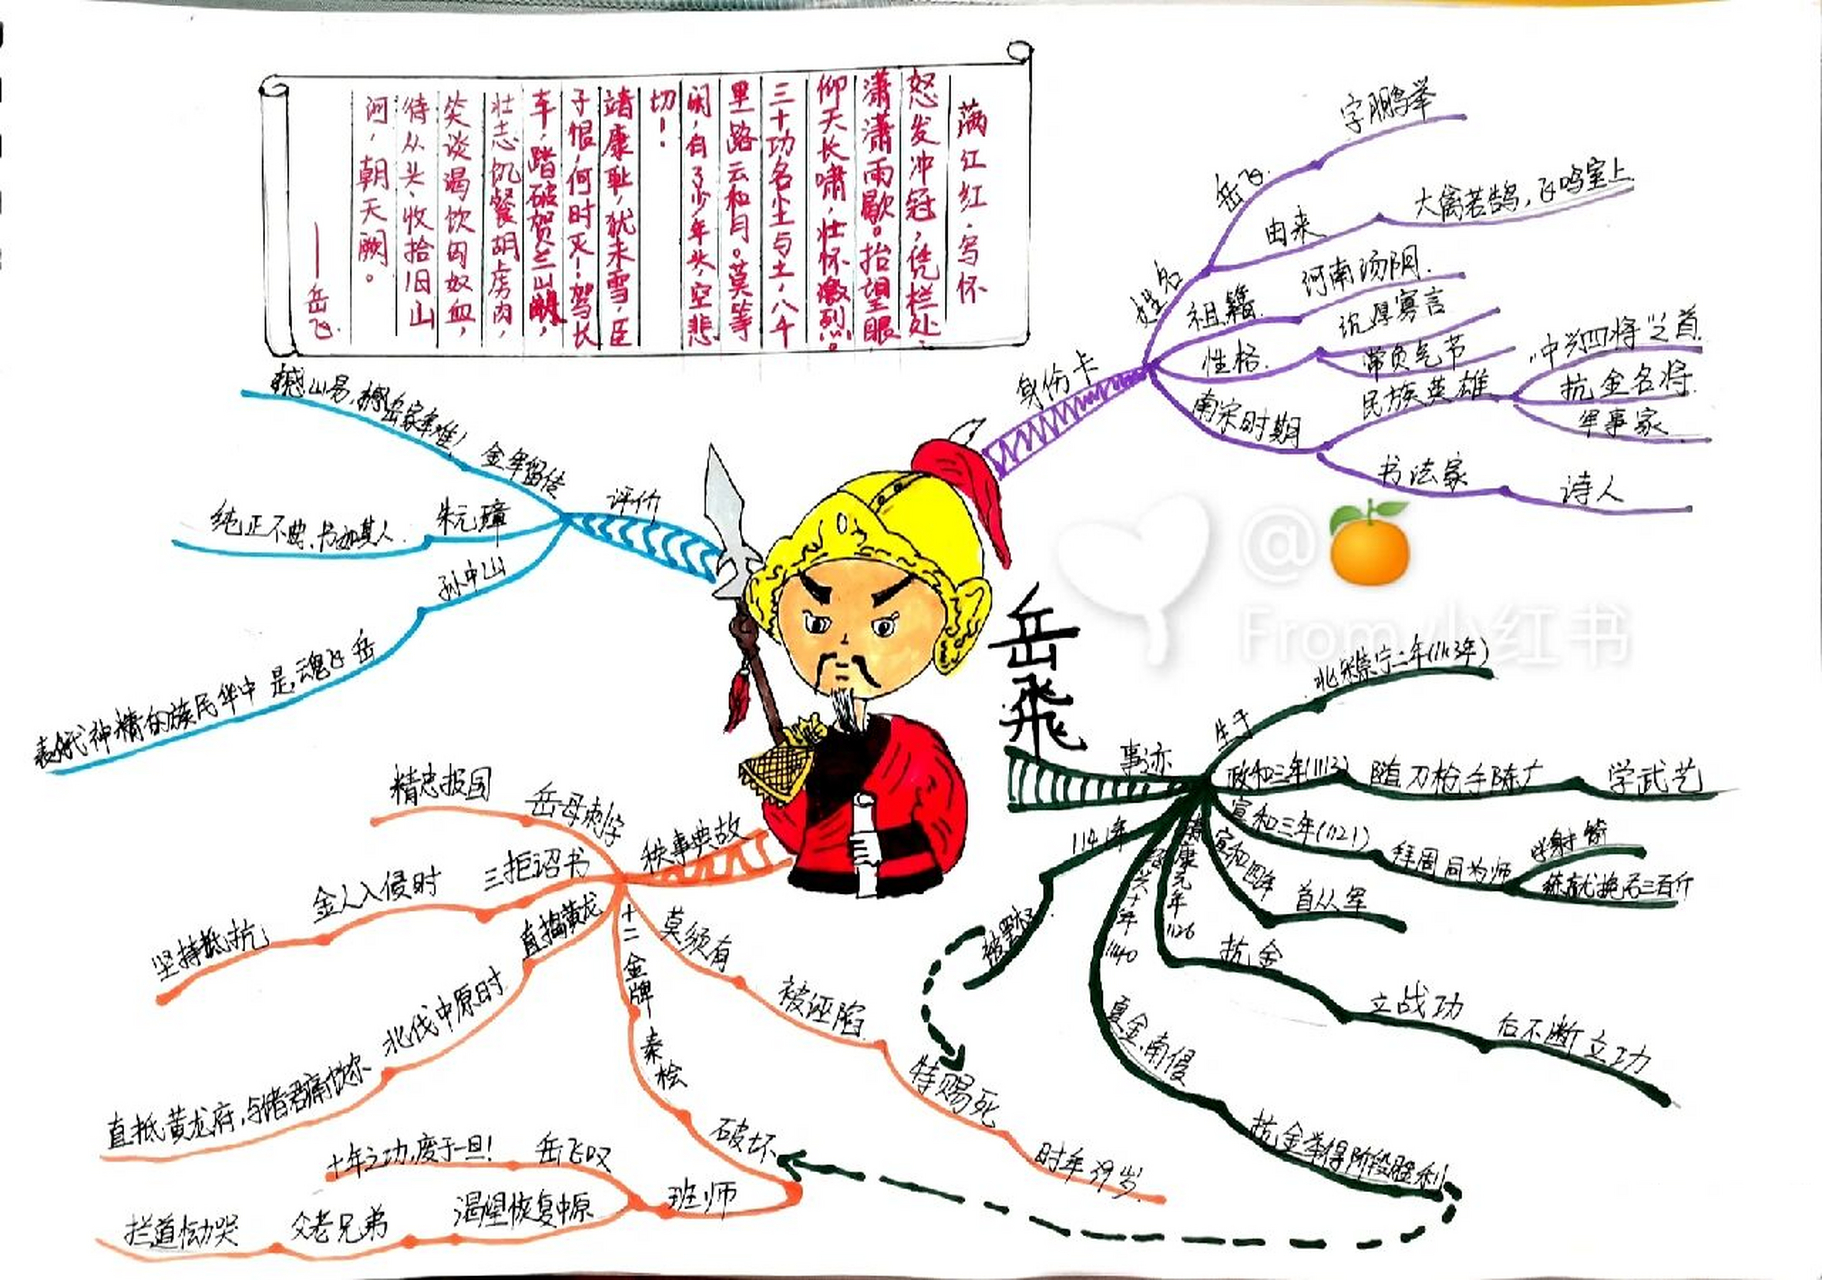 满江红·写怀
怒发冲冠,凭栏处、
潇潇雨歇。抬望眼,
仰天长啸,壮怀激烈。
三十功名尘与土,八千
里路云和月。莫等
闲,白了少年头,空悲
切!
靖康耻,犹未雪,臣
子恨,何时灭!驾长
车,踏破贺兰山缺,
壮志饥餐胡虏肉,
笑谈渴饮匈奴血,
待从头、收拾旧山
河,朝天阙。
——岳飞
岳飛
身份卡
姓名
岳飞
字鹏举
由来
大禽若鹄,飞鸣室上
祖籍
河南汤阴
性格
沉厚寡言
常负气节
南宋时期
民族英雄
"中兴四将"之首
抗金名将
军事家
书法家
诗人
事迹
生于
北宋崇宁二年(1103年)
政和三年(1113)
随刀枪手陈广
学武艺
宣和三年(1121)
拜周同为师
射箭
挽弓三百斤
宣和四年
首从军
靖康元年1126
抗金
立战功
后不断立功
绍兴十年1140
金南侵
抗金举得阶段胜利
1141年
特赐死
秩事典故
岳母刺字
精忠报国
三拒诏书
金人入侵时
坚持抵抗
直捣黄龙
北伐中原时
直抵黄龙府,与诸君痛饮尔
十二金牌
秦桧
破坏
班师
岳飞叹
十年之功,废于一旦!
渴望恢复中原
父老兄弟
拦道恸哭
莫须有
被诬陷
时年39岁
评价
金军留传
撼山易,撼岳家军难!
朱元璋
纯正不曲,书如其人
孙中山
岳飞魂,是中华民族的精神代表
@🍊
From 小红书